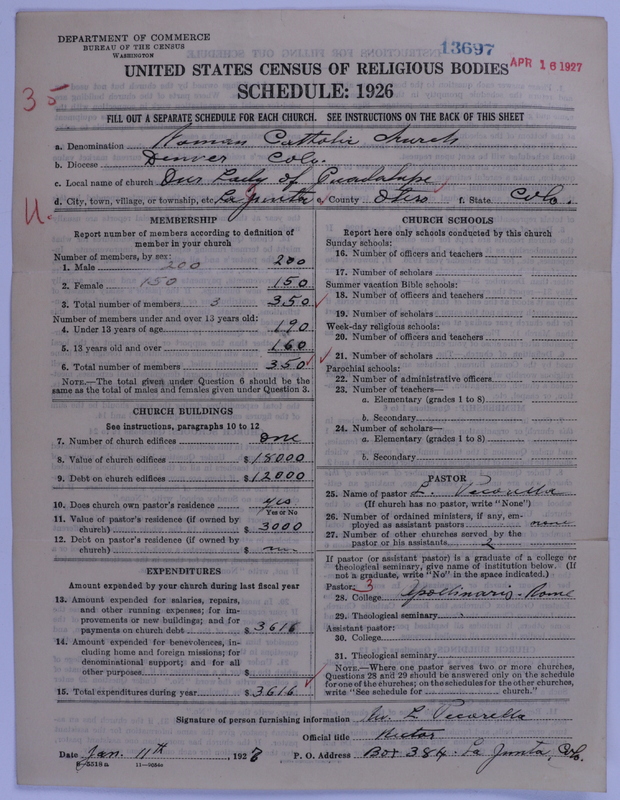 DEPARTMENT OF COMMERCE
BUREAU OF THE CENSUS
WASHINGTON
13697
APR 16 1927
UNITED STATES CENSUS OF RELIGIOUS BODIES
SCHEDULE: 1926
35
FILL OUT A SEPARATE SCHEDULE FOR EACH CHURCH. SEE INSTRUCTIONS ON THE BACK OF THIS SHEET
a. Denomination Roman Catholic Church
b. Diocese Denver Colo.
c. Local name of church Our Lady of Guadalupe
d. City, town, village, or township, etc. La Junta e. County Otero f. State Colo.
U.
MEMBERSHIP
Report number of members according to definition of
member in your church
Number of members, by sex:
1. Male 200 200
2. Female 150 150
3. Total number of members 3 350
Number of members under and over 13 years old:
4. Under 13 years of age 190
5. 13 years old and over 160
6. Total number of members 350
NOTE.—The total given under Question 6 should be the
same as the total of males and females given under Question 3.
CHURCH BUILDINGS
See instructions, paragraphs 10 to 12
7. Number of church edifices one
8. Value of church edifices $18000
9. Debt on church edifices $12000
10. Does church own pastor's residence yes
Yes or No
11. Value of pastor's residence (if owned by
church) $3000
12. Debt on pastor's residence (if owned by
church) $
EXPENDITURES
Amount expended by your church during last fiscal year
13. Amount expended for salaries, repairs,
and other running expenses; for im-
provements or new buildings; and for
payments on church debt $3616
14. Amount expended for benevolences, in-
cluding home and foreign missions; for
denominational support; and for all
other purposes $
15. Total expenditures during year $3616
CHURCH SCHOOLS
Report here only schools conducted by this church
Sunday schools:
16. Number of officers and teachers
17. Number of scholars
Summer vacation Bible schools:
18. Number of officers and teachers
19. Number of scholars
Week-day religious schools:
20. Number of officers and teachers
21. Number of scholars
Parochial schools:
22. Number of administrative officers
23. Number of teachers—
a. Elementary (grades 1 to 8)
b. Secondary
24. Number of scholars—
a. Elementary (grades 1 to 8)
b. Secondary
PASTOR
25. Name of pastor L. Pecorella
(If church has no pastor, write "None")
26. Number of ordained ministers, if any, em-
ployed as assistant pastors none
27. Number of other churches served by the
pastor or his assistants 2
If pastor (or assistant pastor) is a graduate of a college or
theological seminary, give name of institution below. (If
not a graduate, write "No" in the space indicated.)
Pastor: 3
28. College Apollinaris - Rome
29. Theological seminary
Assistant pastor:
30. College
31. Theological seminary
NOTE.—Where one pastor serves two or more churches,
Questions 28 and 29 should be answered only on the schedule
for one of the churches; on the schedules for the other churches,
write "See schedule for church."
Signature of person furnishing information L Pecorella
Official title Rector
Date Jan. 11th, 1927 P. O. Address Box 384 - La Junta, Colo.
8-5518a 11-9084a